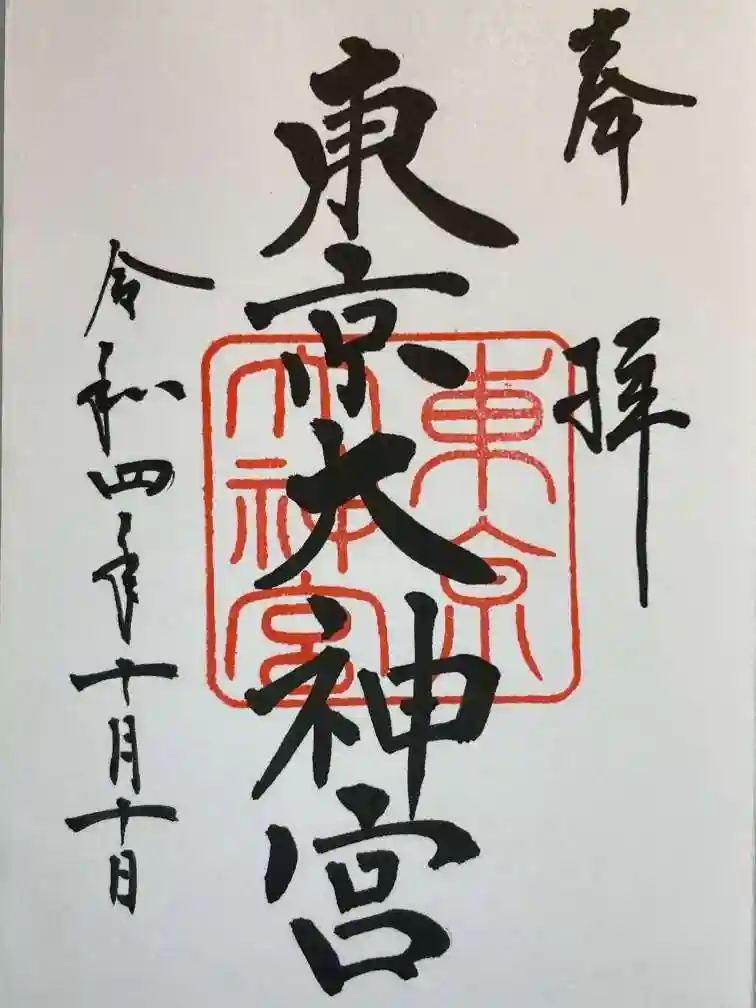 奉拝
東京大神宮
東京
大神宮
令和四年十月十日